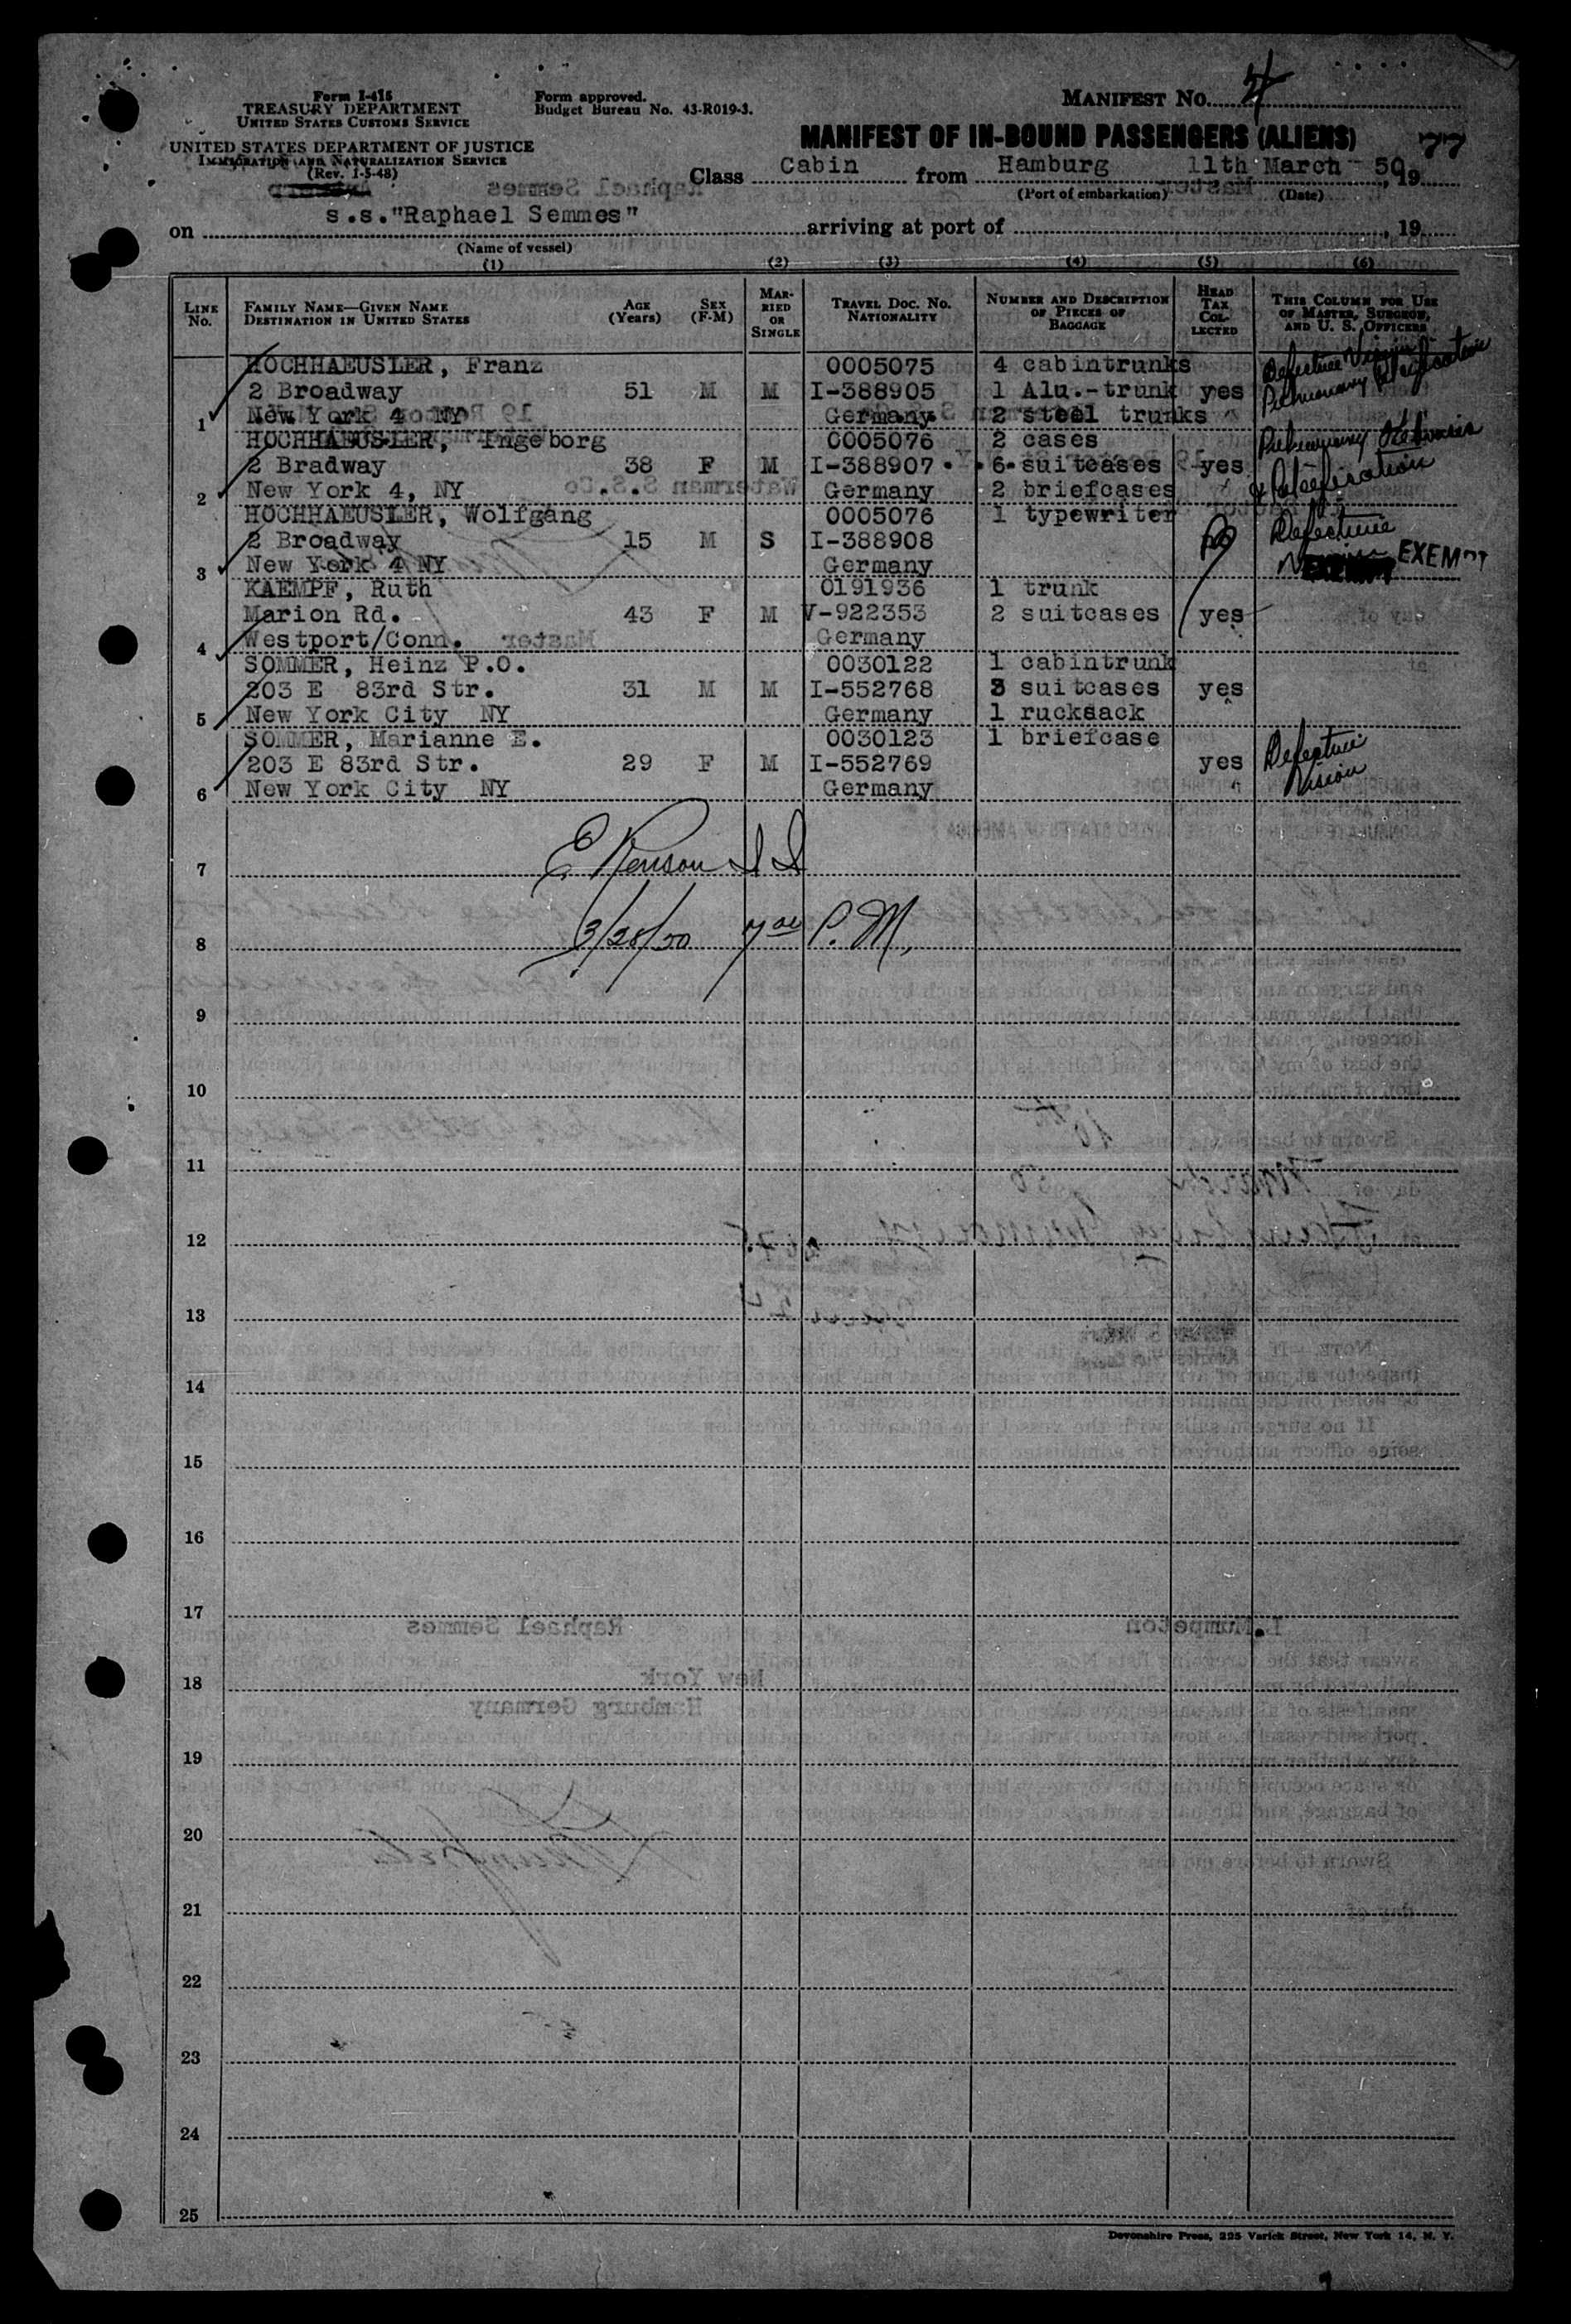 Form I-415
TREASURY DEPARTMENT
UNITED STATES CUSTOMS SERVICE
UNITED STATES DEPARTMENT OF JUSTICE
IMMIGRATION AND NATURALIZATION SERVICE
(Rev. 1-5-48)
Form approved.
Budget Bureau No. 43-R019-3.
MANIFEST NO. 4
MANIFEST OF IN-BOUND PASSENGERS (ALIENS) 77
Class Cabin from Hamburg 11th March 50, 19
(Port of embarkation) (Date)
on s.s."Raphael Semmes" arriving at port of , 19
(Name of vessel)
(1) (2) (3) (4) (5) (6)
LINE No. FAMILY NAME—GIVEN NAME DESTINATION IN UNITED STATES AGE (Years) SEX (F-M) MARRIED OR SINGLE TRAVEL DOC. NO. NATIONALITY NUMBER AND DESCRIPTION OF PIECES OF BAGGAGE HEAD TAX COLLECTED THIS COLUMN FOR USE OF MASTER, SURGEON, AND U. S. OFFICERS
HOCHHAEUSLER, Franz 0005075 4 cabintrunks Defective Vision
2 Broadway 51 M M I-388905 1 Alu.-trunk yes Pulmonary Calcification
1 New York 4 NY Germany 2 steel trunks
HOCHHAEUSLER, Ingeborg 0005076 2 cases Pulmonary
2 Bradway 38 F M I-388907 6 suitcases yes & Calcification
2 New York 4, NY Germany 2 briefcases
HOCHHAEUSLER, Wolfgang 0005076 1 typewriter
2 Broadway 15 M S I-388908 Defective
3 New York 4 NY Germany Vision EXEMPT
KAEMPF, Ruth 0191936 1 trunk
Marion Rd. 43 F M V-922353 2 suitcases yes
4 Westport/Conn. Germany
SOMMER, Heinz P.O. 0030122 1 cabintrunk
203 E 83rd Str. 31 M M I-552768 3 suitcases yes
5 New York City NY Germany 1 rucksack
SOMMER, Marianne E. 0030123 1 briefcase
203 E 83rd Str. 29 F M I-552769 yes Defective
6 New York City NY Germany Vision
7 E. Kenson I I
8 3/28/50 7 00 P.M.
9
10
11
12
13
14
15
16
17
18
19
20
21
22
23
24
25
Devonshire Press, 225 Varick Street, New York 14, N. Y.